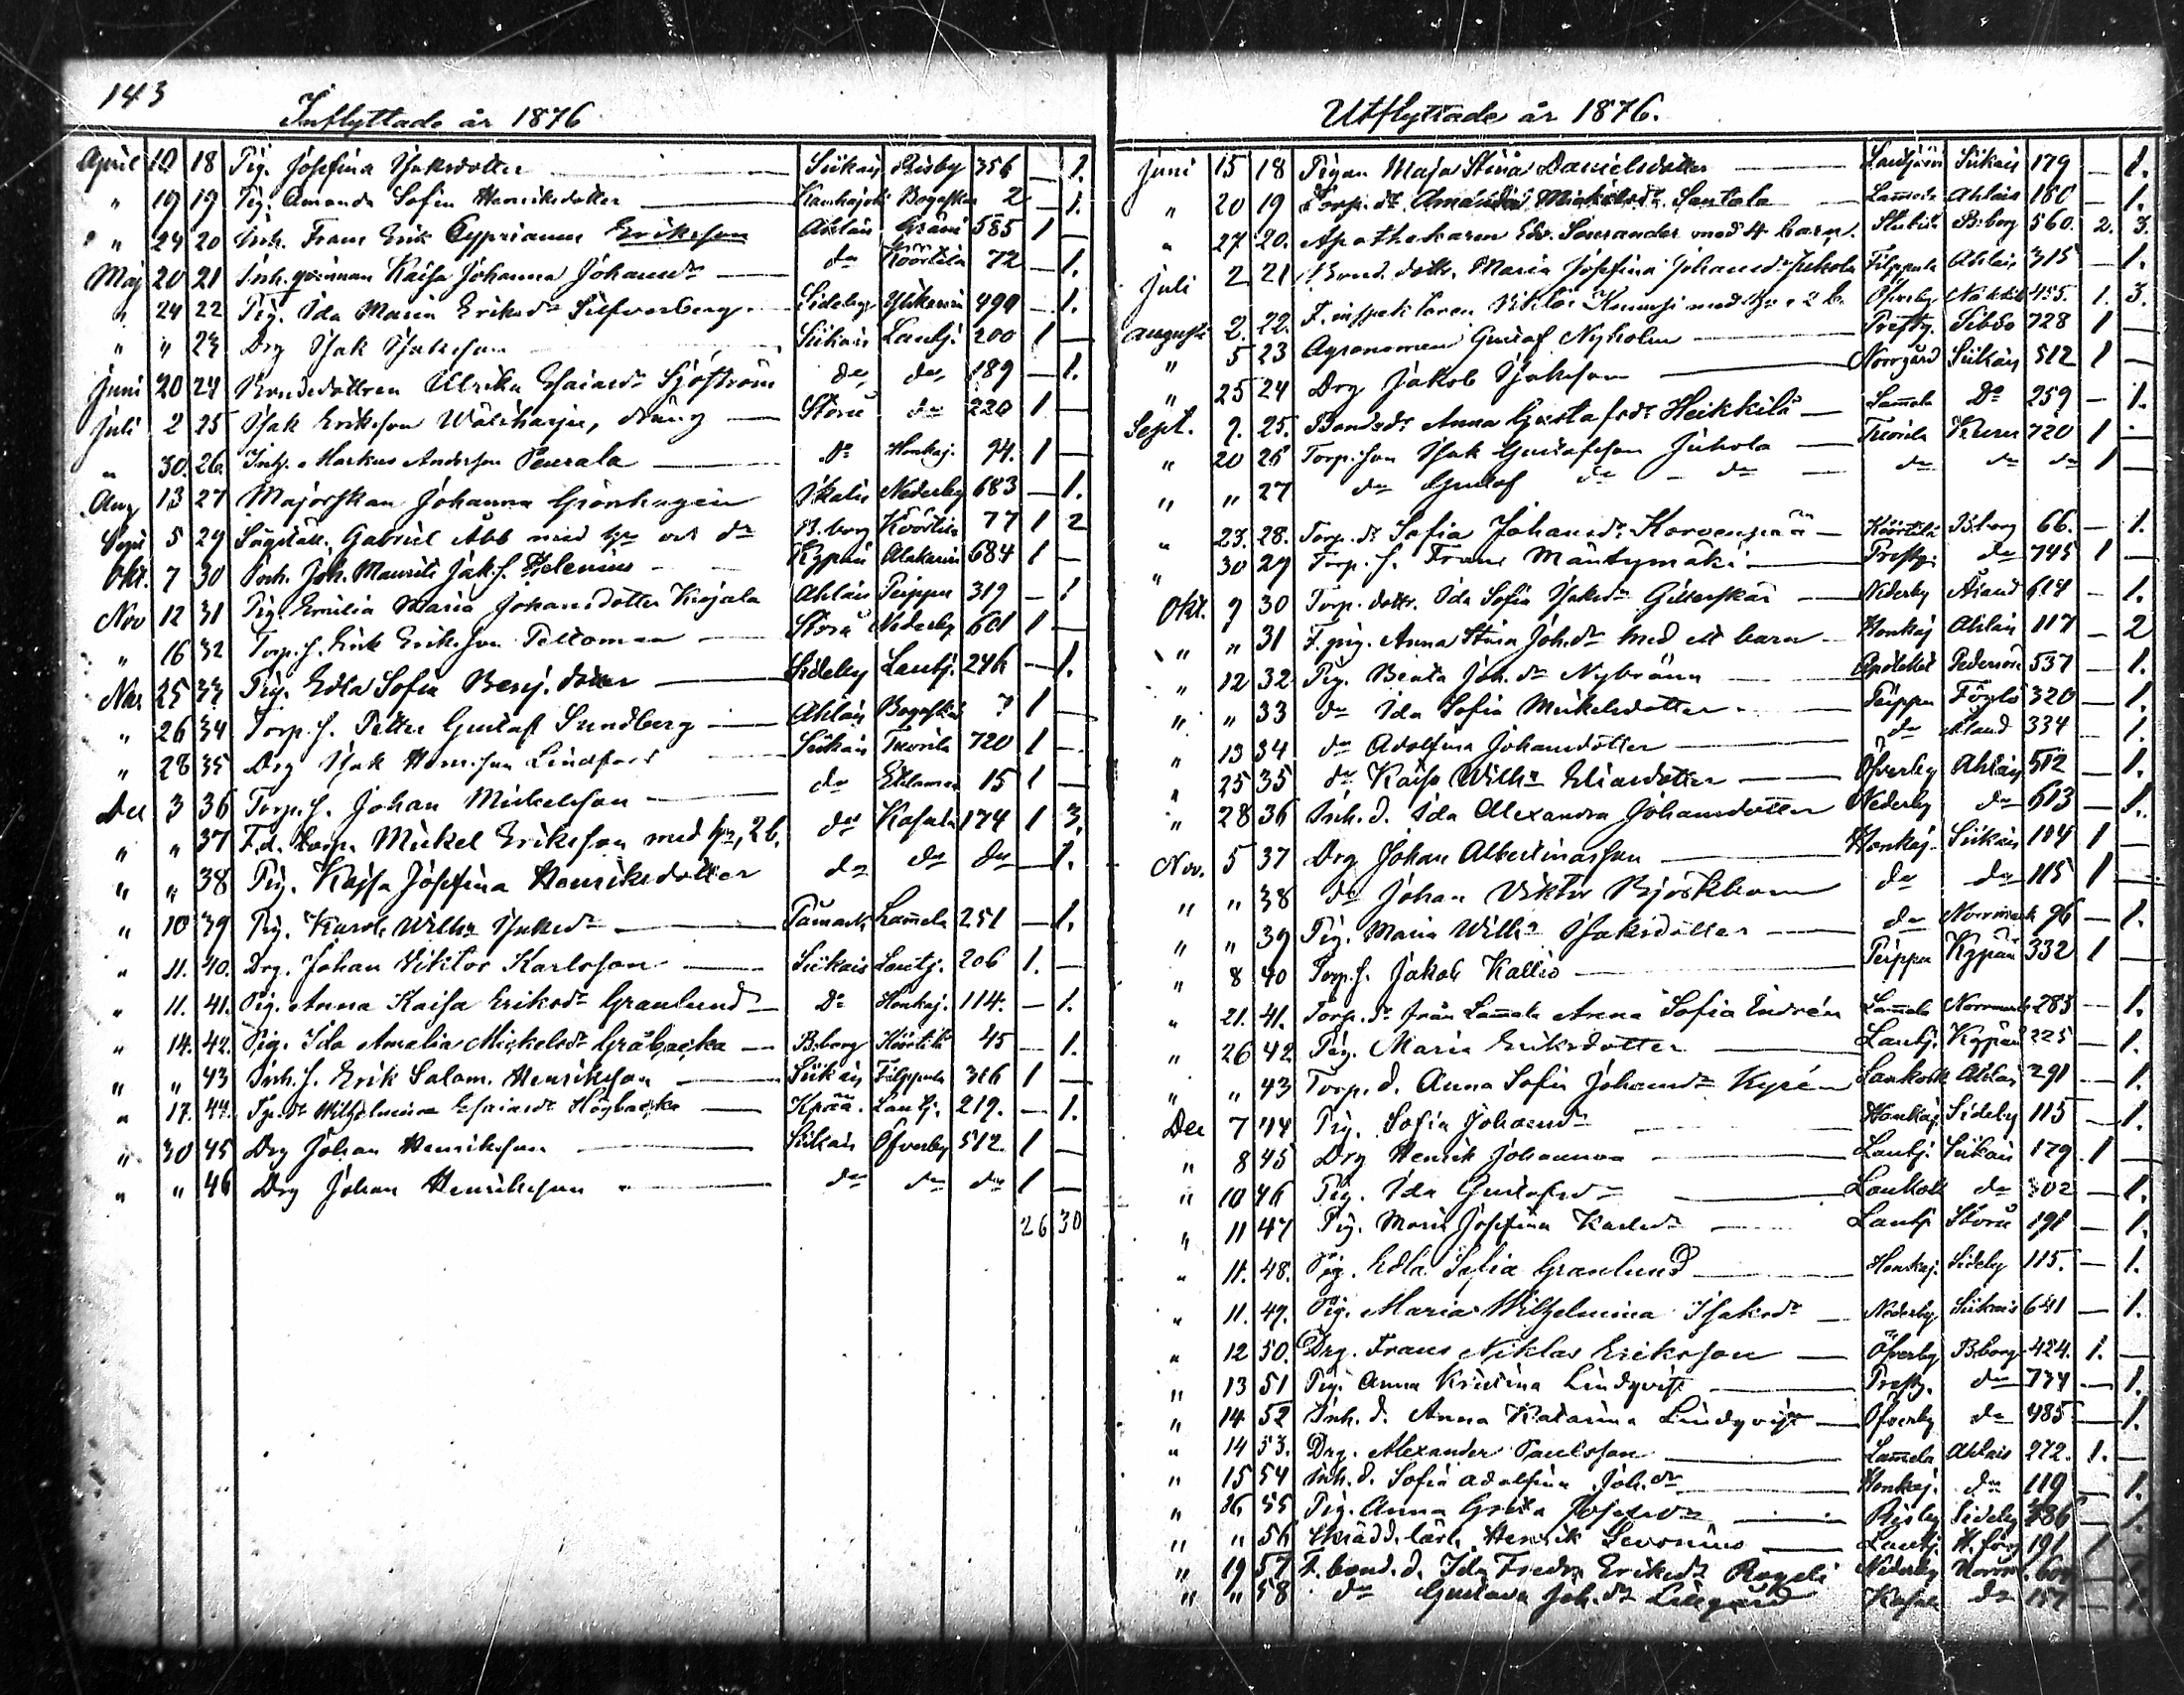 143
Inflyttade år 1876
April 10 18 Pig. Josefina Isaksdotter Siikais Risby 356 — 1.
" 19 19 Pig. Amanda Sofia Henriksdotter Bogaskär 2 — 1.
" 24 20 Inh. Frans Erik Cyprianus Eriksson Ahlais 585 1 —
Maj 20 21 Inh.qvinnan Kaisa Johanna Johansdr do Köörtilä 72 — 1.
" 24 22 Pig. Ida Maria Eriksdr Silfverberg Sideby 490 — 1.
" " 23 Drg Isak Isaksson Siikais Lautj. 200 1 —
Juni 20 24 Bondedottren Ulrika Esaiasdr Sjöström do do 189 — 1.
Juli 2 25 Isak Eriksson dräng Storå do 220 1 —
" 30. 26. Inh. Markus Andersson Peurala do Honkaj. 94. 1 —
Aug 13 27 Majorskan Johanna Grönhagen Ikalis Nederby 683 — 1.
Sept 5 29 Gabriel Abb med hu och dr B.borg Köörtilä 77 1 2
Okt. 7 30 Inh. Joh. Maurits Jak.s. Helenius 684 1 —
Nov 12 31 Pig. Emilia Maria Johansdotter Kojala Ahlais Peippu 319 — 1
" 16 32 Torp.s. Erik Eriksson Peltomaa Storå Nederby 601 1 —
Nov 25 33 Pig. Edla Sofia Benj. dotter Sideby Lautj. 246 — 1.
" 26 34 Torp.s. Petter Gustaf Sundberg Ahlais Bogaskär ? 1 —
" 28 35 Drg Isak Henriksson Lindfors Siikais Tuorila 720 1 —
Dec 3 36 Torp.s. Johan Mickelsson do 15 1 —
" " 37 F.d. torp. Mickel Eriksson med hu, 2 b. do Kasala 174 1 3.
" " 38 Pig. Kajsa Josefina Henriksdotter do do do — 1.
" 10 39 Pig. Karol. Wilha Isaksdr Påmark Lamela 251 — 1.
" 11. 40. Drg. Johan Viktor Karlsson Siikais Lautj. 206 1. —
" 11. 41. Pig. Anna Kaisa Eriksdr Granlund Do Honkaj. 114. — 1.
" 14. 42. Pig. Ida Amalia Mickelsdr Gråbacka B.borg Köörtilä 45 — 1.
" " 43 Inh.s. Erik Salom. Henriksson Siikais Filppula 316 1 —
" 17. 44. Wilhelmina Esaiasdr Högbacka Lautj. 219. — 1.
" 30 45 Drg Johan Henriksson Siikais Öfverby 512 1 —
" " 46 Drg Johan Henriksson do do do 1 —
26 30
Utflyttade år 1876.
Juni 15 18 Pigan Maja Stina Danielsdotter Lautjärvi Siikais 179 — 1.
" 20 19 Torp. dr. Amanda Mickelsdr Santala Lamela Ahlais 180 — 1.
" 27 20. Apothekaren Edv. Saurander med 4 barn. B:borg 560. 2. 3.
Juli 2 21 Bond. dottr. Maria Josefina Johansdr Juhola Filppula Ahlais 315 — 1.
Augusti 2. 22. F. inspektoren Viktor med hu o 2 b. Öfverby 455. 1. 3.
" 5 23 Agronomen Gustaf Nyholm Prestg. Sibbo 728 1 —
" 25 24 Drg Jakob Isaksson Norrgård Siikais 512 1 —
Sept. 9. 25. Bondedr Anna Gustafsdr Heikkilä Lamela Do 259 — 1.
" 20 26 Torp.son Isak Gustafsson Juhola Tuorila 720 1 —
" " 27 do Gustaf do — do do do do 1 —
" 23. 28. Torp. dr Sofia Johansdr Korvenpää Köörtilä B:borg 66. — 1.
" 30 29 Torp. s. Frans Mäntymäki Prestg. do 745 1 —
Okt. 9 30 Torp. dottr. Ida Sofia Isaksdr Gillerskär Nederby Åland 614 — 1.
" " 31 F. pig. Anna Stina Joh.dr med ett barn Honkaj Ahlais 117 — 2
" 12 32 Pig. Beata Joh. dr Nybränn Apothek Pedersöre 537 — 1.
" " 33 do Ida Sofia Mickelsdotter Peippu Föglö 320 — 1.
" 13 34 do Adolfina Johansdotter do Åland 334 — 1.
" 25 35 do Kaisa Wilha Eliasdotter Öfverby Ahlais 512 — 1.
" 28 36 Inh. d. Ida Alexandra Johansdotter Nederby do 613 — 1.
Nov. 5 37 Drg Johan Albertinasson Honkaj. Siikais 114 1 —
" " 38 do Johan Viktor Björkbom do do 115 1 —
" " 39 Pig. Maria Wilha Isaksdotter do Norrmark 96 — 1.
" 8 40 Torp.s. Jakob Kallio Peippu Kspää 332 1 —
" 21. 41. Torp. dr från Lamela Anna Sofia Endrén Lamela Norrmark 283 — 1.
" 26 42 Pig. Maria Eriksdotter Lautj. 225 — 1.
" " 43 Torp. d. Anna Sofia Johansdr Kyrén Lankosk Ahlais 291 — 1.
Dec 7 44 Pig. Sofia Johansdr Honkaj. Sideby 115 — 1.
" 8 45 Drg Henrik Johansson Lautj. Siikais 179 1 —
" 10 46 Pig. Ida Gustafsdr Lankosk do 302 — 1.
" 11 47 Pig. Maria Josefina Karlsdr Lautj Storå 191 — 1.
" 11. 48. Pig. Edla Sofia Granlund Honkaj. Sideby 115. — 1.
" 11. 49. Pig. Maria Wilhelmina Isaksdr Nederby Siikais 641 — 1.
" 12 50. Drg. Frans Niklas Eriksson Öfverby B:borg 424. 1. —
" 13 51 Pig. Anna Kristina Lindqvist Prestg. do 734 — 1.
" 14 52 Inh. d. Anna Katarina Lindqvist Öfverby do 485 — 1.
" 14 53. Drg. Alexander Paulsson Lamela Ahlais 272. 1. —
" 15 54 Inh. d. Sofia Adolfina Joh. dr Honkaj. do 119 — 1.
" 16 55 Pig. Anna Greta Josefsdr Risby Sideby 386 — 1.
" " 56 Skrädd. lärl. Henrik Levonius Lautj. 191 1 —
" 19 57 F. bond. d. Ida Fredra Eriksdr Nederby Norrm.
" " 58 do Gustava Joh. dr Lillgård Kasala do 157